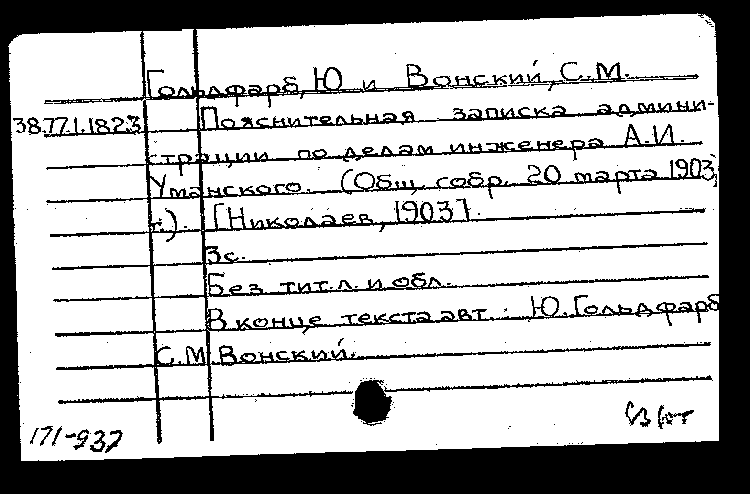 Гольдфарб, Ю и Вонский, С.М.
38.77.1.1823 Пояснительная записка админи-
страции по делам инженера А.И.
Уманского. (Общ. собр. 20 марта 1903
г.). [Николаев, 1903].
3с.
Без тит. л. и обл.
В конце текста авт.: Ю. Гольдфарб
С.М. Вонский.
171-937